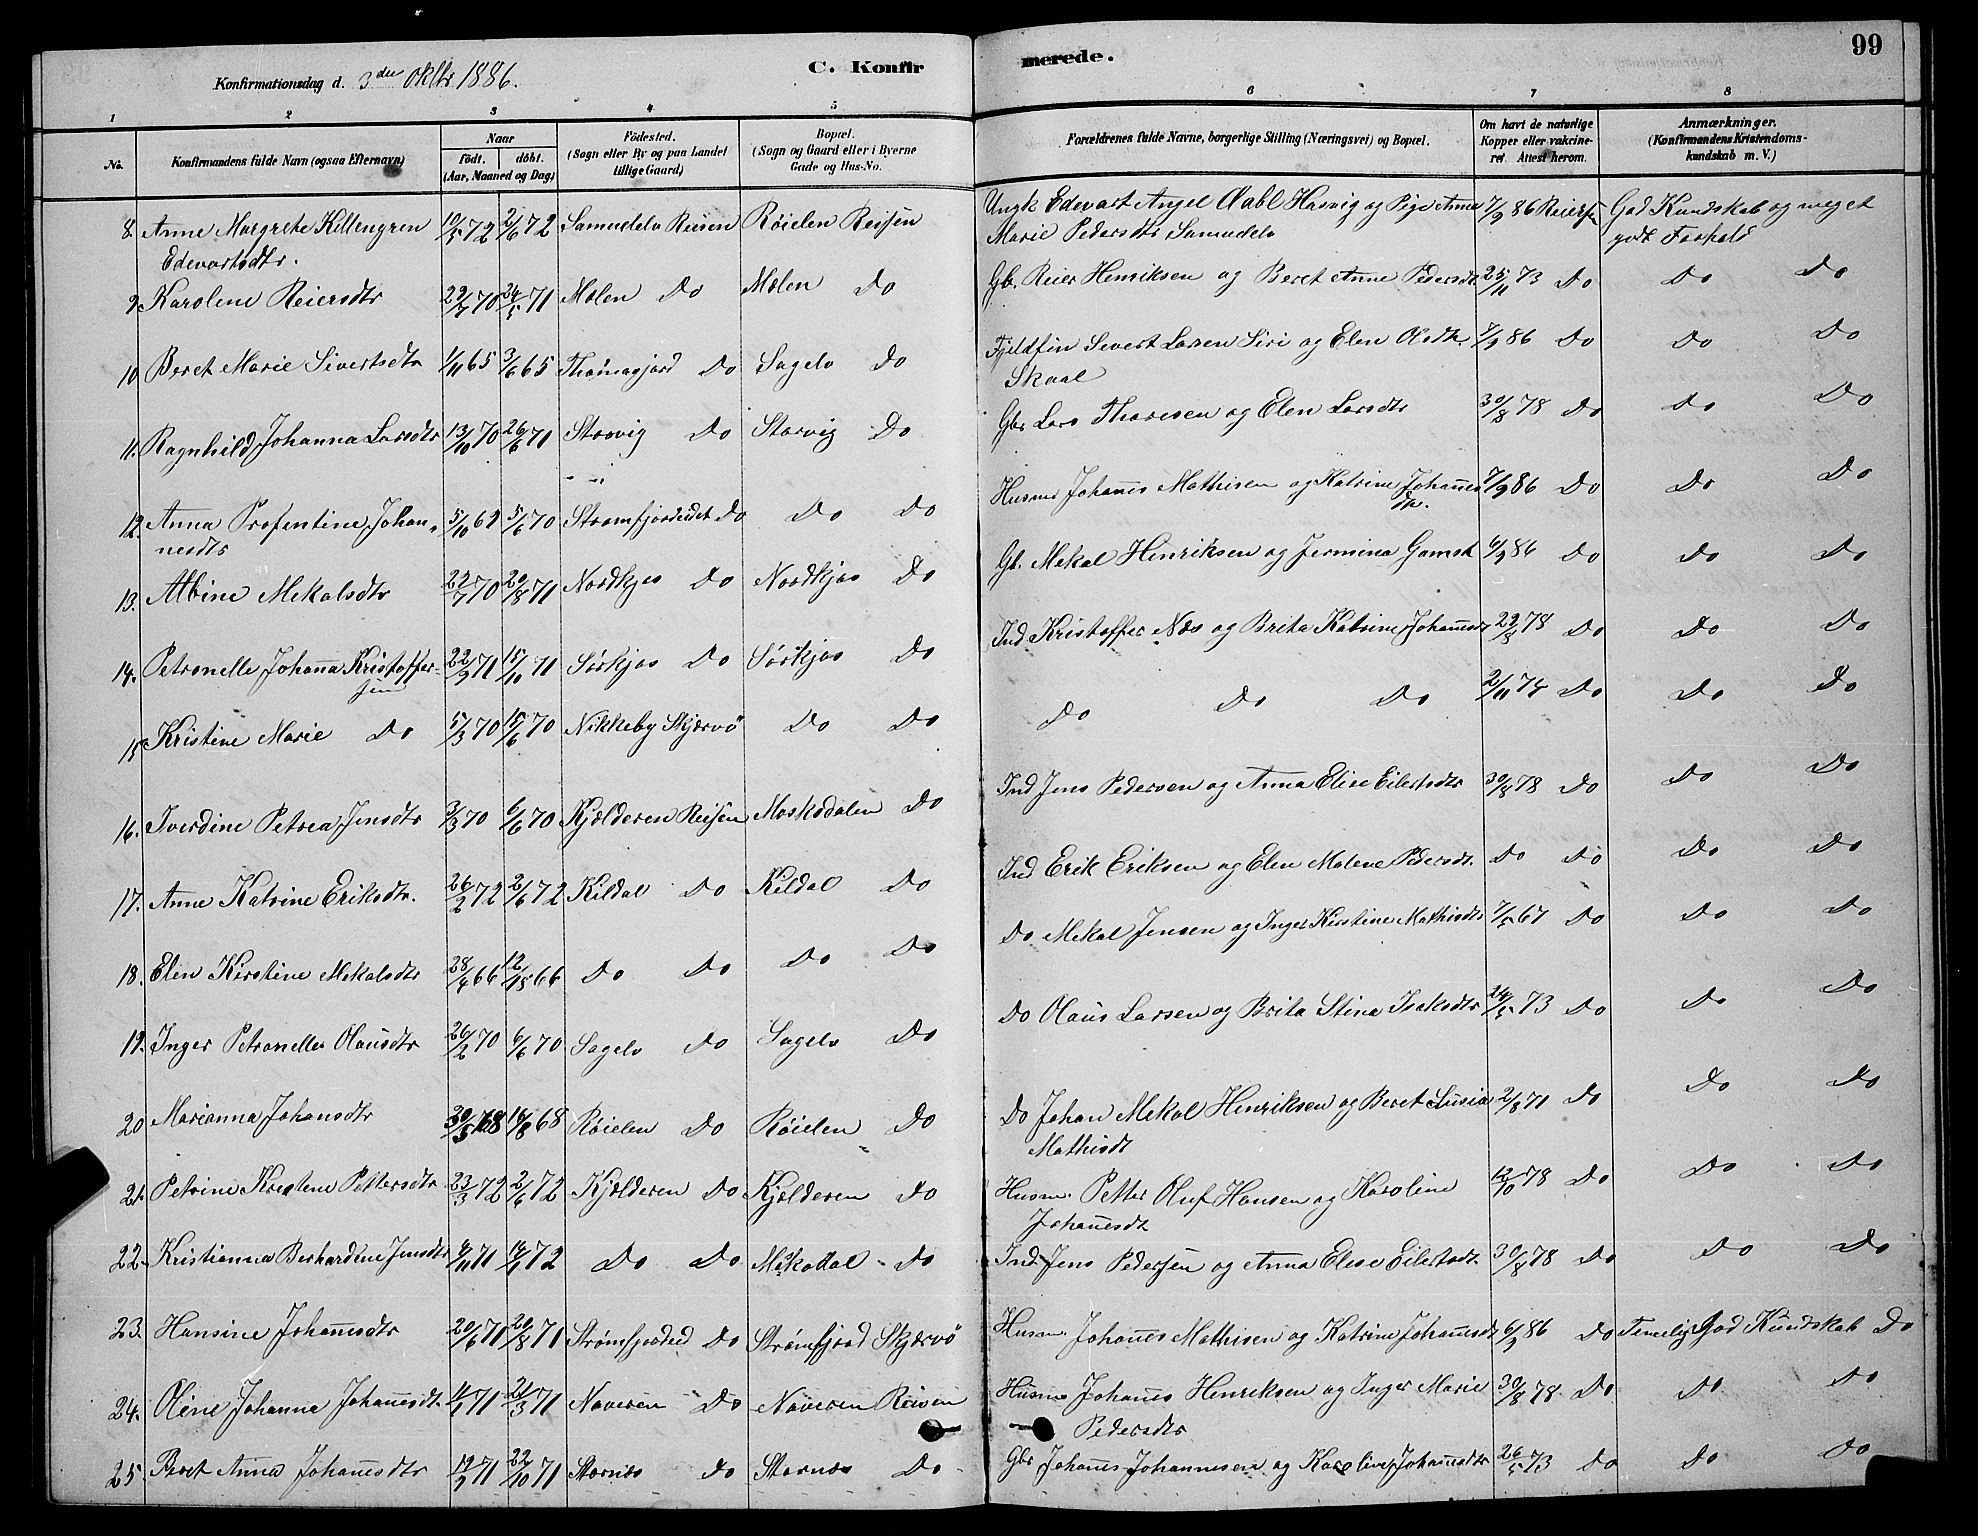 Konfirmationsdag d. 3die Oktbr 1886.
C. Konfirmerede.
99
1 2 3 4 5 6 7 8
No.
Konfirmandens fulde Navn (ogsaa Efternavn)
Naar
födt. döbt.
(Aar, Maaned og Dag)
Födested.
(Sogn eller By og paa Landet
tillige Gaard)
Bopæl.
(Sogn og Gaard eller i Byerne
Gade og Hus-No.
Forældrenes fulde Navne, borgerlige Stilling (Næringsvei) og Bopæl.
Om havt de naturlige
Kopper eller vakcine-
ret Attest herom.
Anmærkninger.
(Konfirmandens Kristendoms-
kundskab m. V.)
8. Anne Margrete Killengren 10/5 72 2/6 72 Samuelelv Reisen Røielen Reisen Ungk Edevart Angel Aabl Hasvig og Pige Anna 7/9 86 Reiersen God Kundskab og meget
Edevartsdtr. Marie Pedersdtr Samuelelv godt Forhold
9. Karoline Reiersdtr 29/7 70 24/5 71 Molen Do Molen Do Gb. Reier Henriksen og Beret Anne Pedersdt 25/11 73 Do Do Do
10 Beret Marie Sivertsdtr 1/11 65 3/6 65 Thomasjord Do Sagelv Do Fjeldfin Sivert Larsen Siri og Elen Olsdtr. 7/9 86 Do Do Do
Skaal
11. Ragnhild Johanna Larsdtr 13/10 70 26/6 71 Storvig Do Storvig Do Gbr Lars Thoresen og Elen Larsdtr 30/8 78 Do Do Do
12. Anna Profentine Johan- 5/10 69 5/6 70 Stromfjordeidet Do Do Do Husm Johanes Mathisen og Katrine Johannes 7/9 86 Do Do Do
nesdtr dtr.
13. Albine Mekalsdtr 22/7 70 20/8 71 Nordkjos Do Nordkjos Do Gb. Mekal Henriksen og Jermina Gamst 6/9 86 Do Do Do
14. Petronelle Johana Kristoffer- 22/9 71 15/10 71 Sørkjos Do Sørkjos Do Ind Kristoffer Nes og Brita Katrine Johansdt 29/8 78 Do Do Do
sen
15 Kristine Marie Do 5/3 70 15/6 70 Nikkeby Skjervö Do Do Do Do Do 2/11 74 Do Do Do
16. Iverdine Petrea Jensdtr 3/3 70 6/6 70 Kjelderen Reisen Moskodalen Do Ind Jens Pedersen og Anna Elise Eilertsdtr 30/8 78 Do Do Do
17. Anne Katrine Eriksdtr. 26/2 72 2/6 72 Kildal Do Kildal Do Ind Erik Eriksen og Elen Malene Pedersdt. Do Do Do Do
18. Elen Kirstine Mekalsdtr 28/4 66 12/8 66 Do Do Do Do Do Mekal Jensen og Inger Kirstine Mathisdtr 7/5 67 Do Do Do
19. Inger Petronelle Olausdtr 26/2 70 6/6 70 Sagelv Do Sagelv Do Do Olaus Larsen og Brita Stina Isaksdtr 24/5 73 Do Do Do
20 Marianna Johansdtr 30/5 68 16/8 68 Røielen Do Røielen Do Do Johan Mekal Henriksen og Beret Susia 2/8 71 Do Do Do
Mathisdt
21. Petrine Kristene Pettersdtr 23/3 72 2/6 72 Kjelderen Do Kjelderen Do Husm. Petter Oluf Hansen og Karoline 12/10 78 Do Do Do
Johanesdt
22. Kristianna Berhardine Jensdtr 6/11 71 14/1 72 Do Do Moskodal Do Ind Jens Pedersen og Anna Elise Eilertsdt. 30/8 78 Do Do Do
23. Hansine Johanesdtr 20/6 71 20/8 71 Strømfjordeid Do Strømfjord Skjervö Husm. Johanes Mathisen og Katrine Johanesdt 6/9 86 Do Temelig God Kundskab Do
24. Oline Johanna Johanesdt. 4/1 71 21/3 71 Naveren Do Naveren Reisen Husm Johanes Henriksen og Inger Marie 30/8 78 Do Do Do
Pedersdtr
25. Beret Anna Johanesdtr 19/9 71 22/10 71 Stornes Do Stornes Do Gbr Johanes Johannesen og Karoline Johansdtr 26/5 73 Do Do Do